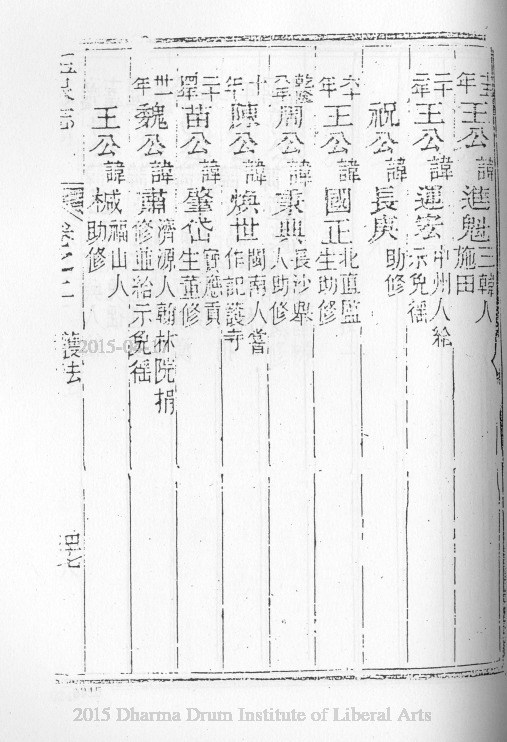 十五年王公諱進魁三韓人施田
二十二年王公諱運宏中州人給示免徭
祝公諱長庚助修
六十年王公諱國正北直監生助修
乾隆八年周公諱秉典長沙舉人助修
十年陳公諱煥世閩南人嘗作記護寺
二十四年苗公諱肇岱寶應貢生董修
卅一年魏公諱肅濟源人翰林院捐修並給示免徭
王公諱棫福山人助修
卷之二 護法
2015 Dharma Drum Institute of Liberal Arts